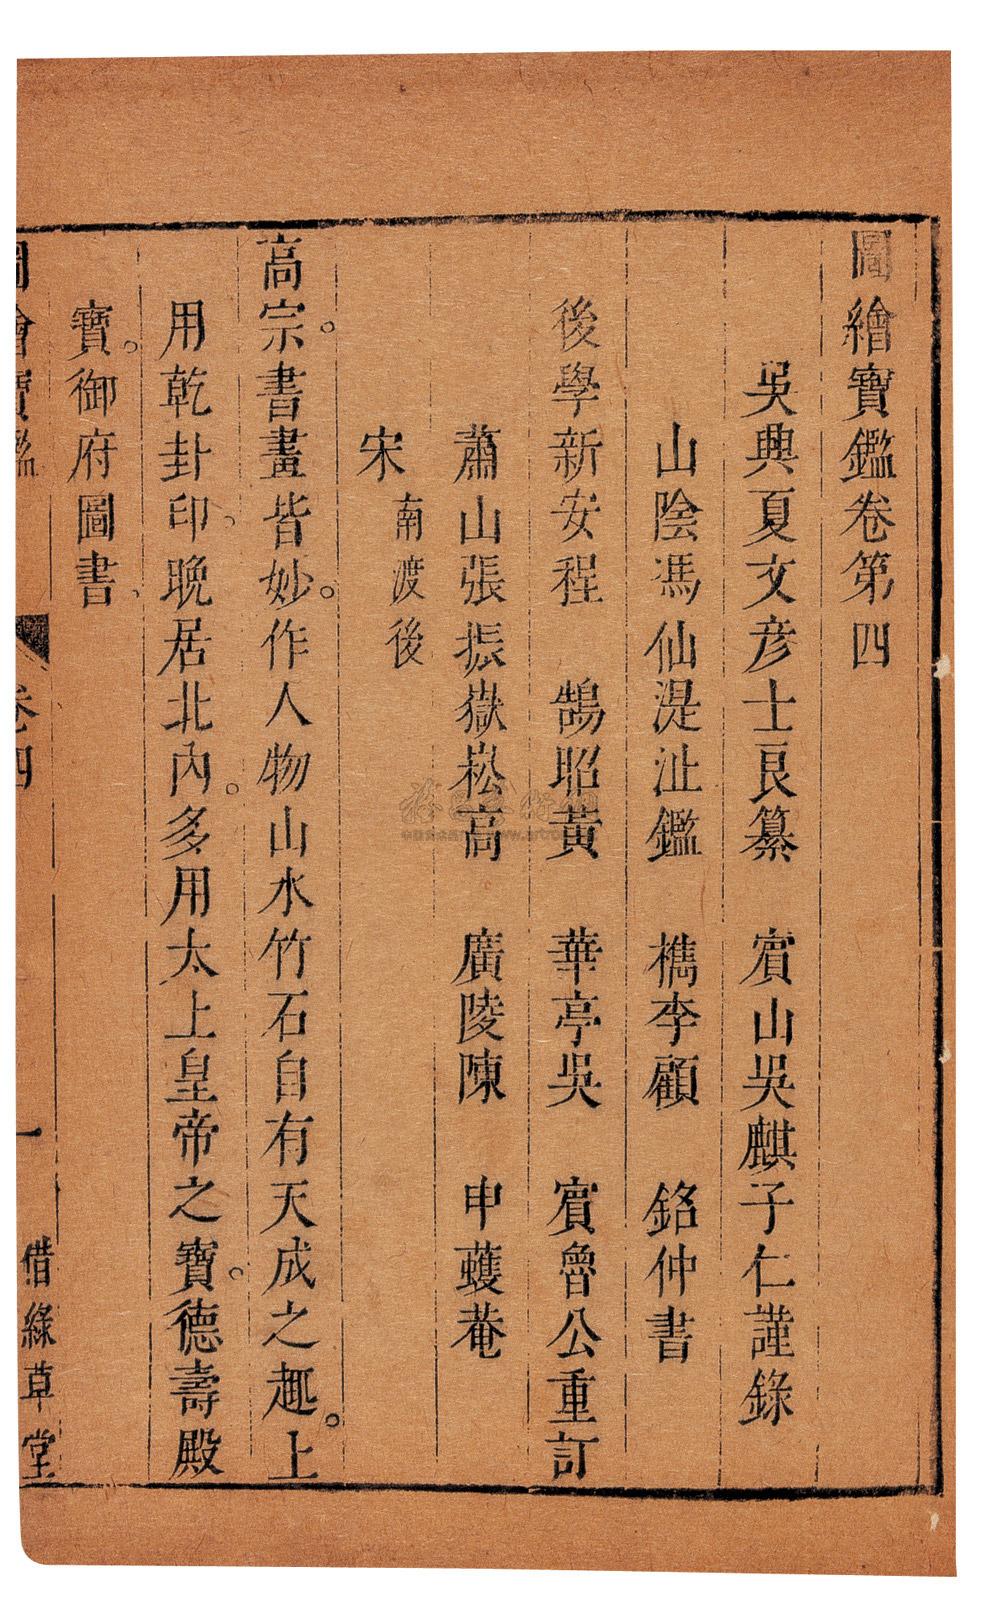 圖繪寶鑑卷第四
吳興夏文彥士良纂　賓山吳麒子仁謹錄
山陰馮仙湜沚鑑　檇李顧　銘仲書
後學新安程　鵠昭黃　華亭吳　賓魯公重訂
蕭山張振嶽崧高　廣陵陳　申蕿菴
宋南渡後
高宗書畫皆妙。作人物山水竹石自有天成之趣。上
用乾卦印、晚居北內。多用太上皇帝之寶。德壽殿
寶。御府圖書、
圖繪寶鑑　卷四　一　借綠草堂